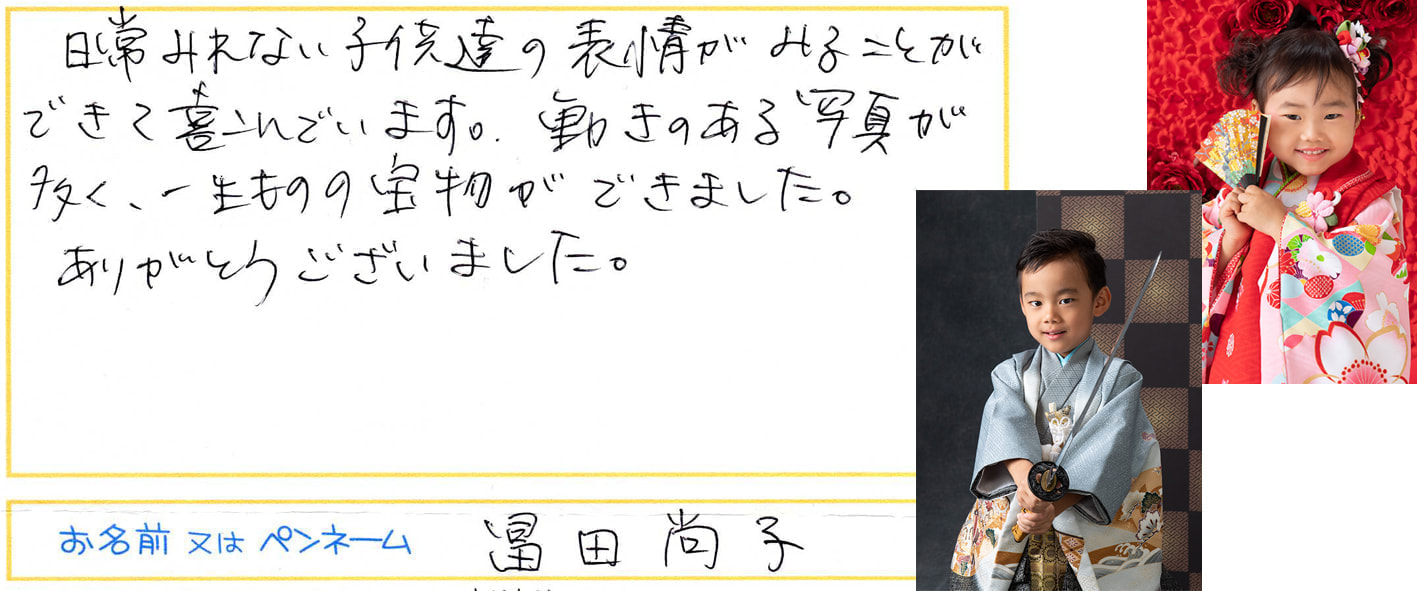 日常みれない子供達の表情がみることが
できて喜こんでいます。動きのある写真が
多く、一生ものの宝物ができました。
ありがとうございました。
お名前 又は ペンネーム 冨田 尚子